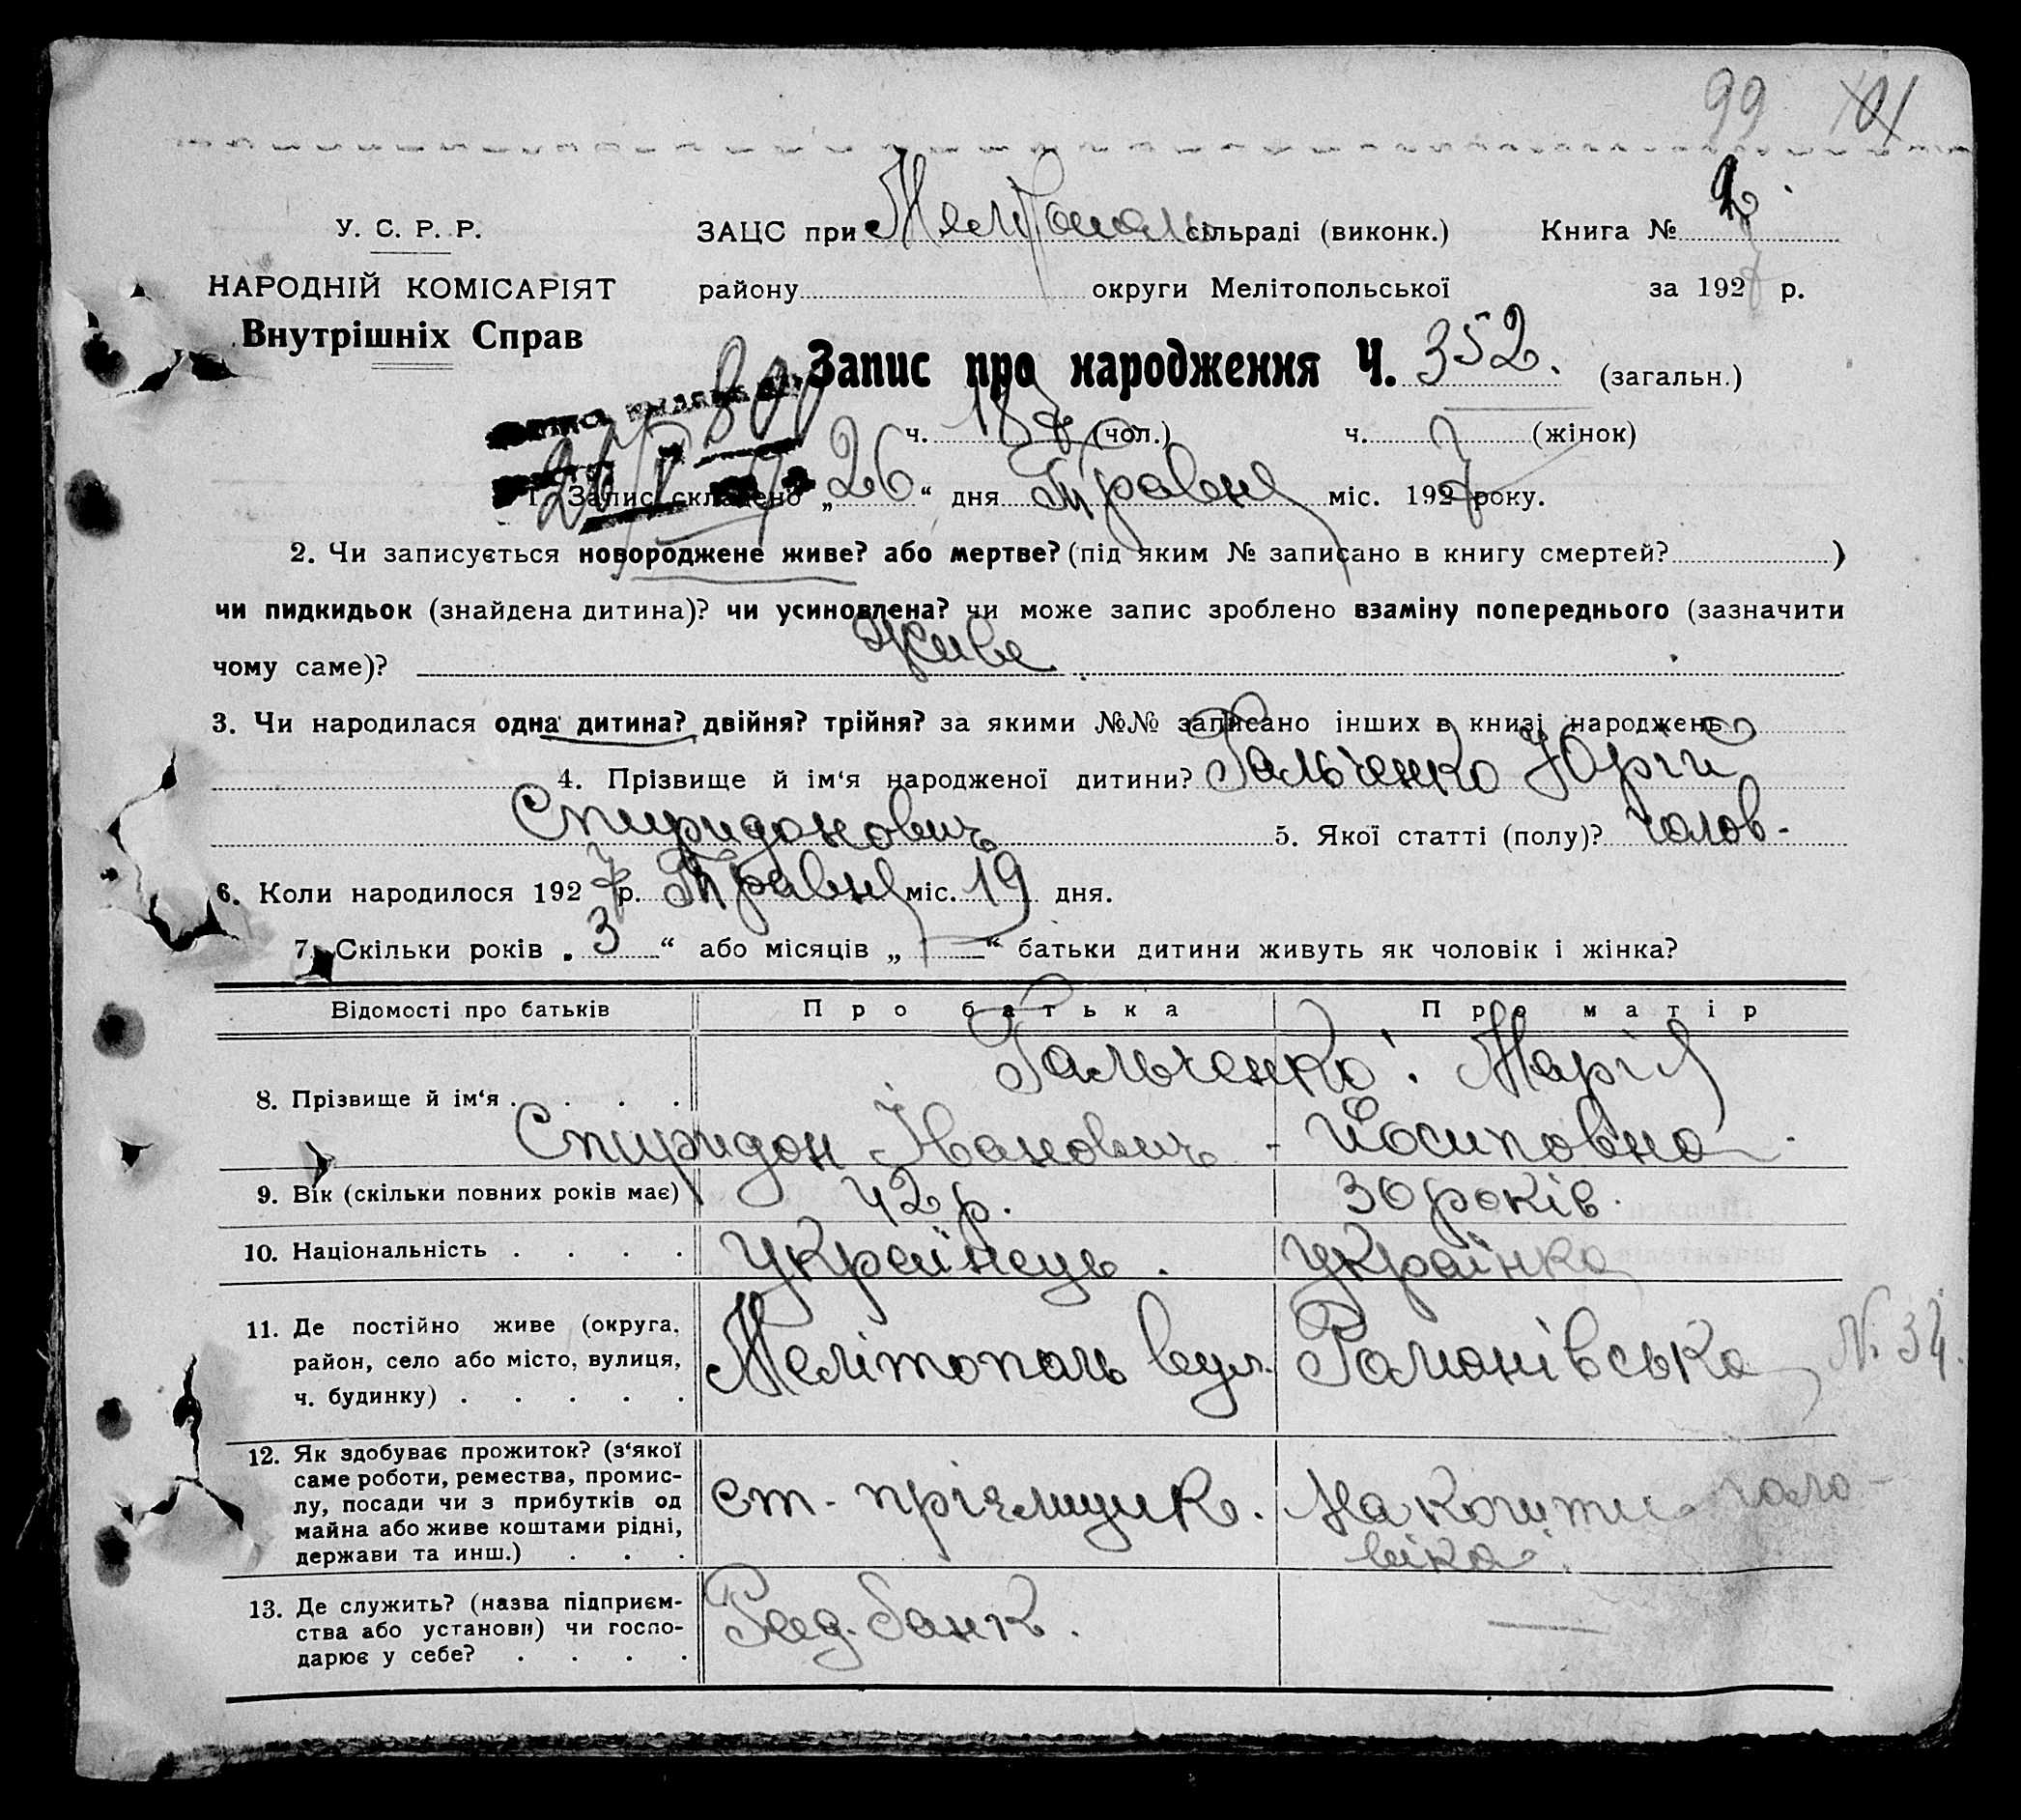 99
У. С. Р. Р. ЗАЦС при Меліполь сільраді (виконк.) Книга №
НАРОДНІЙ КОМІСАРІЯТ району округи Мелітопольської за 1927 р.
Внутрішніх Справ
Запис про народження Ч. 352. (загальн.)
ч. 187 (чол.) ч. (жінок)
1. Запис складено „26“ дня Травня міс. 1927 року.
2. Чи записується новороджене живе? або мертве? (під яким № записано в книгу смертей? )
чи пидкидьок (знайдена дитина)? чи усиновлена? чи може запис зроблено взаміну попереднього (зазначити
чому саме)? Живе
3. Чи народилася одна дитина? двійня? трійня? за якими №№ записано інших в книзі народжень
4. Прізвище й ім‘я народженої дитини? Гальченко Юрій
Спиридонович 5. Якої статті (полу)? чолов-
6. Коли народилося 1927 р. Травня міс. 19 дня.
7. Скільки років „3“ або місяців „—“ батьки дитини живуть як чоловік і жінка?
Відомості про батьків Про батька Про матір
Гальченко. Марія
8. Прізвище й ім‘я . . . .
Спиридон Іванович - Йосиповна
9. Вік (скільки повних років має) 42 р. 30 років.
10. Національність . . . . Українець. Українка
11. Де постійно живе (округа,
район, село або місто, вулиця, Мелітополь вул. Романівська № 34.
ч. будинку) . . . . .
12. Як здобуває прожиток? (з‘якої
саме роботи, ремества, промис-
лу, посади чи з прибутків од ст. пріємщик. На кошти чоло-
майна або живе коштами рідні, віка.
держави та инш.) . . .
13. Де служить? (назва підприєм-
ства або установи) чи госпо- банк.
дарює у себе? . . . .